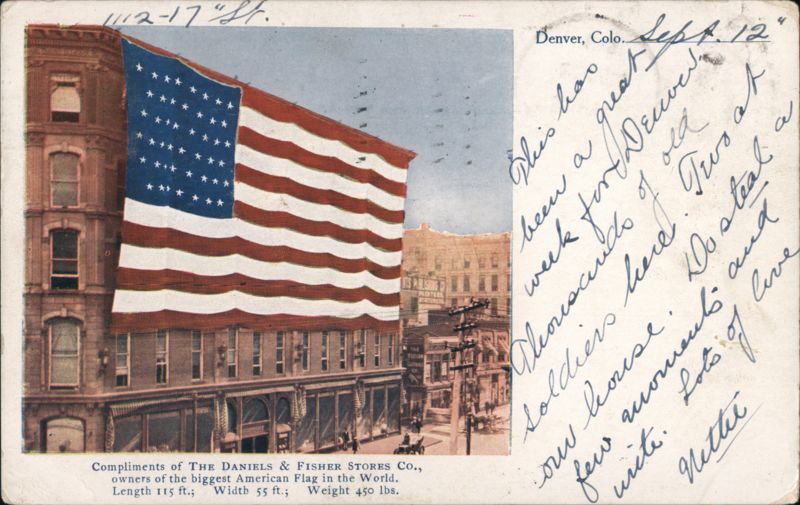 1112-17" St.
Denver, Colo. Sept. 12"
This has
been a great
week for Denver
Thousands of old
soldiers here. Two at
our house. Do steal a
few moments and
write. Lots of love
Nettie
Compliments of THE DANIELS & FISHER STORES CO.,
owners of the biggest American Flag in the World.
Length 115 ft.; Width 55 ft.; Weight 450 lbs.